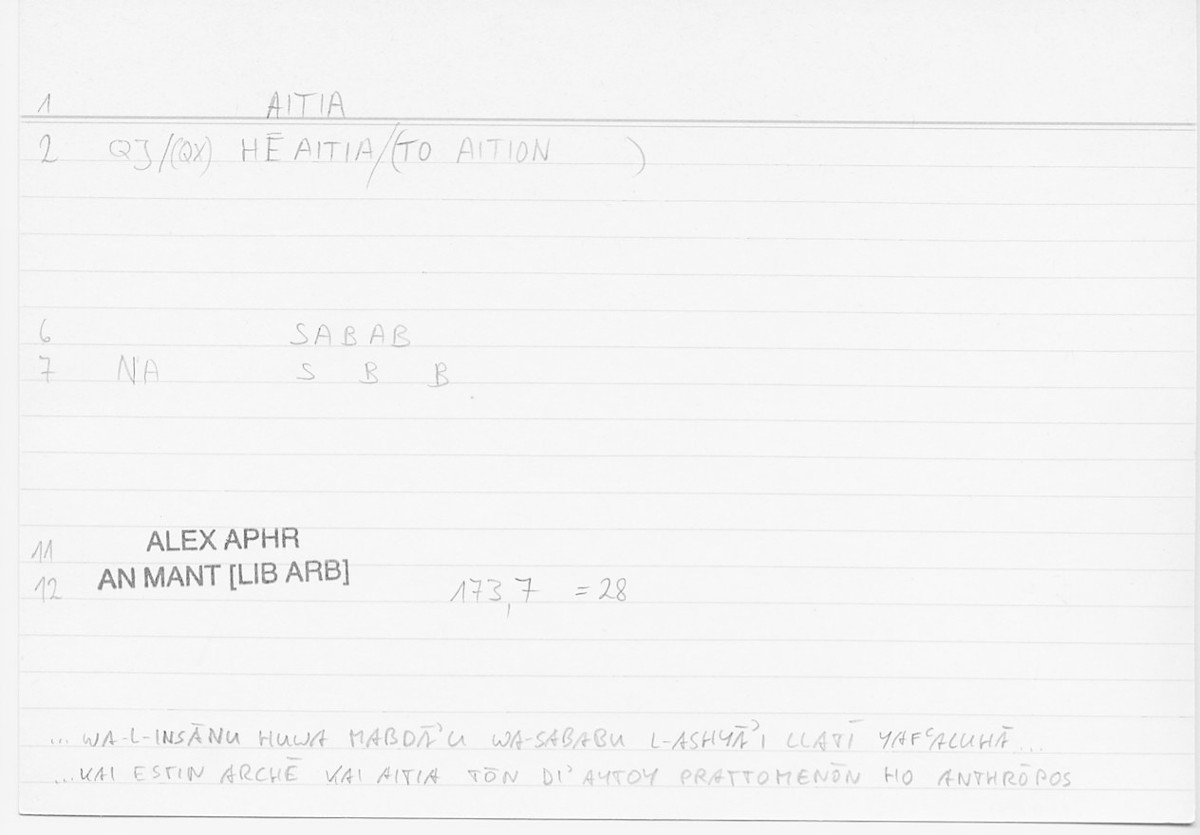 1 AITIA
2 QJ/(QX) HĒ AITIA/(TO AITION )
6 SABAB
7 NA S B B
11 ALEX APHR
12 AN MANT [LIB ARB] 173,7 =28
... WA-L-INSĀNU HUWA MABDAʾU WA-SABABU L-ASHYĀʾI LLATĪ YAFʿALUHĀ...
...KAI ESTIN ARCHĒ KAI AITIA TŌN DI' AYTOY PRATTOMENŌN HO ANTHRŌPOS